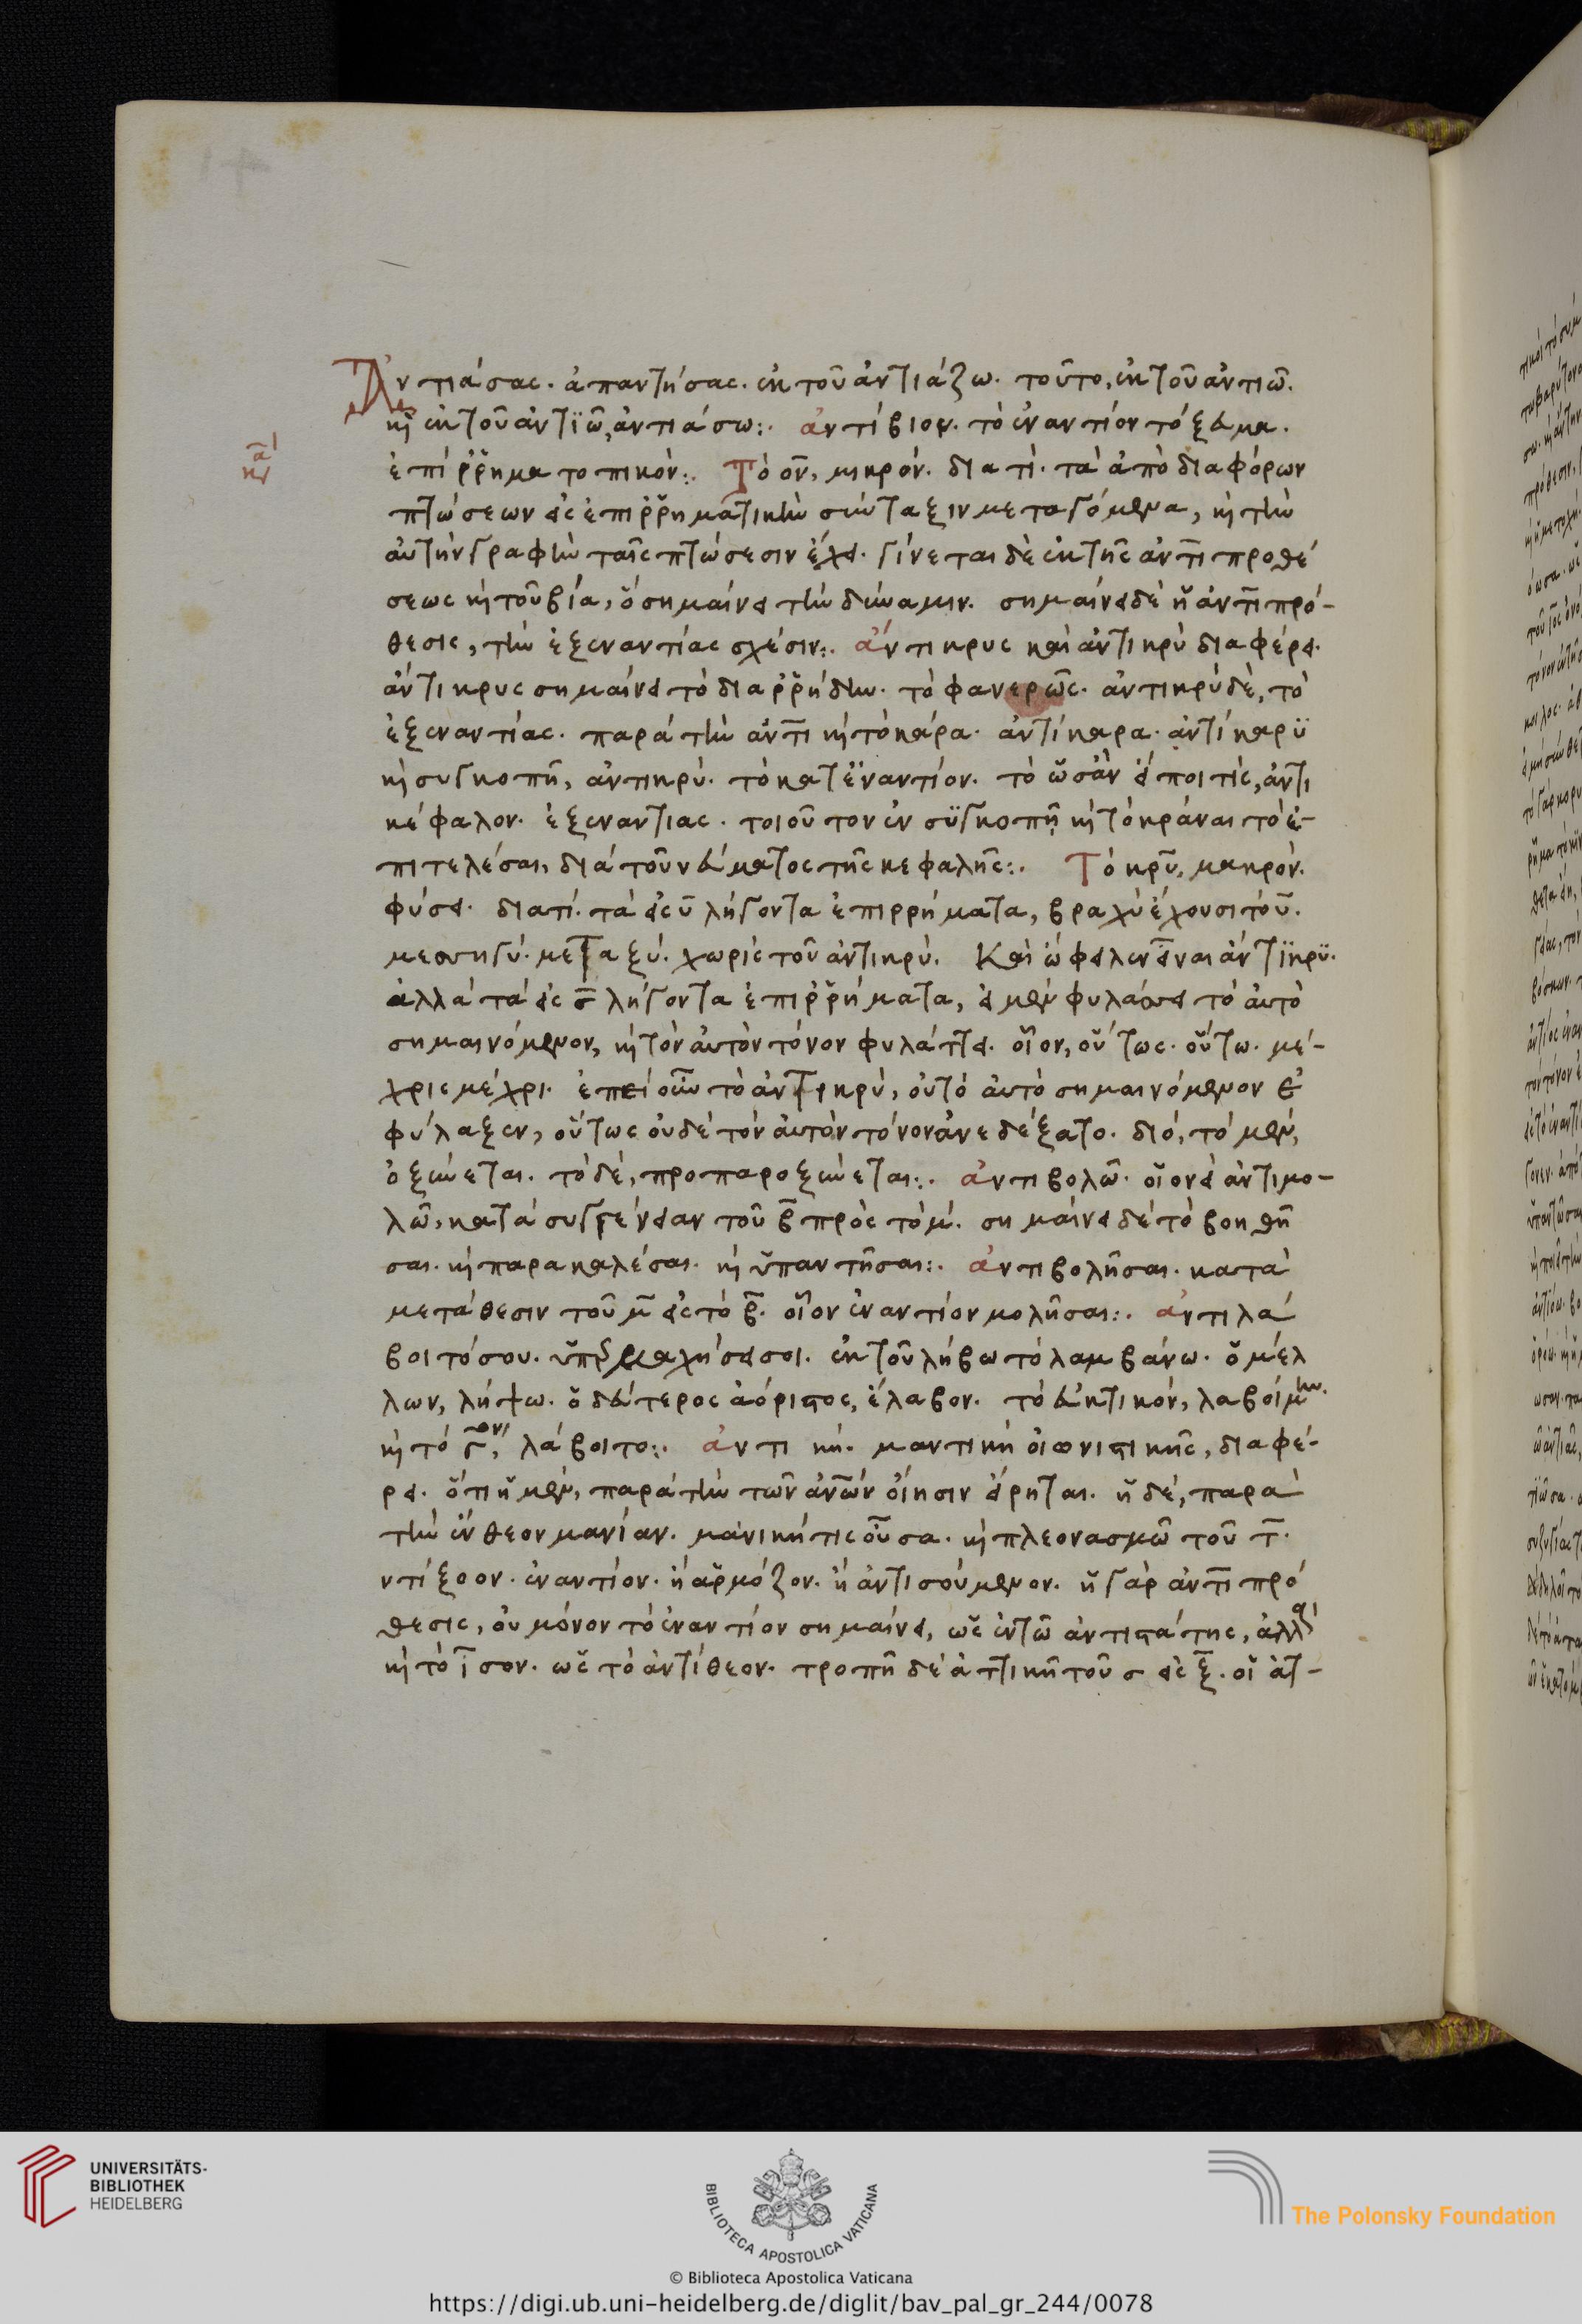 Ἀντιάσας. ἀπαντήσας. ἐκ τοῦ ἀντιάζω. τοῦτο, ἐκ τοῦ ἀντιῶ.
κὶ ἐκ τοῦ ἀντϊῶ, ἀντιάσω:. ἀντίβιον. τὸ ἐναντίον τόξευμα.
ἐπίῤῥημα τοπικόν:. Τὸ ον, μικρόν. διατί. τὰ ἀπὸ διαφόρων
πτώσεων εἰς ἐπιῤῥηματικὴν σύνταξιν μεταγόμενα, κὶ τὴν
αὐτὴν γραφὴν ταῖς πτώσεσιν ἔχει. γίνεται δὲ ἐκ τῆς ἀντὶ προθέ
σεως κὶ τοῦ βία, ὃ σημαίνει τὴν δύναμιν. σημαίνει δὲ ἡ ἀντὶ πρό-
θεσις, τὴν ἐξεναντίας σχέσιν:. ἄντικρυς καὶ ἀντικρὺ διαφέρει.
ἄντικρυς σημαίνει τὸ διαῤῥήδην. τὸ φανερῶς. ἀντικρὺ δὲ, τὸ
ἐξεναντίας. παρὰ τὴν ἀντὶ κὶ τὸ κάρα. ἀντίκαρα. ἀντίκαρϋ
κὶ συγκοπῇ, ἀντικρύ. τὸ κατεναντίον. τὸ ὡσὰν εἴποι τίς, ἀντι
κέφαλον. ἐξεναντιας. τοιοῦτον ἐν συγκοπῇ κὶ τὸ κράναι τὸ ἐ-
πιτελέσαι, διὰ τοῦ νεύματος τῆς κεφαλῆς:. Τὸ κρῦ, μακρόν.
φύσει. διατί. τὰ εἰς υ λήγοντα ἐπιρρήματα, βραχὺ ἔχουσι τὸ υ.
μεσσηγύ. μεταξύ. χωρὶς τοῦ ἀντικρύ. Καὶ ὤφειλεν εἶναι ἄντϊκρϋ.
ἀλλὰ τὰ εἰς σ λήγοντα ἐπιῤῥήματα, εἰ μὲν φυλάσσει τὸ αὐτὸ
σημαινόμενον, κὶ τὸν αὐτὸν τόνον φυλάττει. οἷον, οὕτως. οὕτω. μέ-
χρις μέχρι. ἐπεὶ οὖν τὸ ἀντικρὺ, οὐ τὸ αὐτὸ σημαινόμενον ἐ
φύλαξεν, οὕτως οὐδὲ τὸν αὐτὸν τόνον ἀνεδέξατο. διό, τὸ μὲν,
ὀξύνεται. τὸ δὲ, προπαροξύνεται:. ἀντιβολῶ. οἱονεὶ ἀντιμο-
λῶ, κατὰ συγγένειαν τοῦ β πρὸς τὸ μ. σημαίνει δὲ τὸ βοηθῆ
σαι. κὶ παρακαλέσαι. κὶ ὑπαντῆσαι:. ἀντιβολῆσαι. κατὰ
μετάθεσιν τοῦ μ εἰς τὸ β. οἷον ἐναντίον μολῆσαι:. ἀντιλά
βοιτό σου. ὑπερμαχήσει σοι. ἐκ τοῦ λήβω τὸ λαμβάνω. ὁ μέλ
λων, λήψω. ὁ δεύτερος ἀόριστος, ἔλαβον. τὸ εὐκτικόν, λαβοίμην.
κὶ τὸ γον, λάβοιτο:. ἀντι κή. μαντικὴ οἰωνιστικῆς, διαφέ-
ρει. ὅτι ἡ μὲν, παρὰ τὴν τῶν ἀνων οἴησιν εἴρηται. ἡ δὲ, παρὰ
τὴν ἔνθεον μανίαν. μανικὴ τὶς οὖσα. κὶ πλεονασμῶ τοῦ τ.
ντίξοον. ἐναντίον. ἢ ἁρμόζον. ἢ ἀντισούμενον. ἡ γὰρ ἀντὶ πρό
θεσις, οὐ μόνον τὸ ἐναντίον σημαίνει, ὡς ἐν τῶ ἀντιστάτης, ἀλλὰ
κὶ τὸ ἴσον. ὡς τὸ ἀντίθεον. τροπῇ δὲ ἀττικῇ τοῦ σ εἰς ξ. οἱ ἀτ-
UNIVERSITÄTS-
BIBLIOTHEK
HEIDELBERG
BIBLIOTECA APOSTOLICA VATICANA
The Polonsky Foundation
© Biblioteca Apostolica Vaticana
https://digi.ub.uni-heidelberg.de/diglit/bav_pal_gr_244/0078